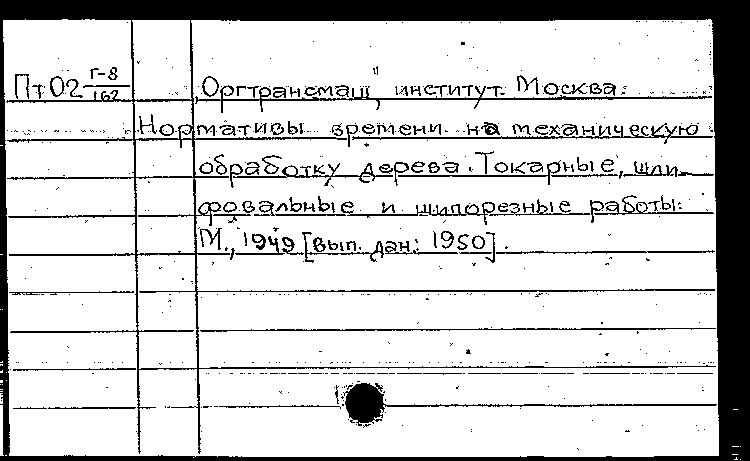 Пт02 Г-8/162 „Оргтрансмаш", институт. Москва.
Нормативы времени на механическую
обработку дерева. Токарные, шли-
фовальные и шипорезные работы.
М., 1949 [вып. дан: 1950].